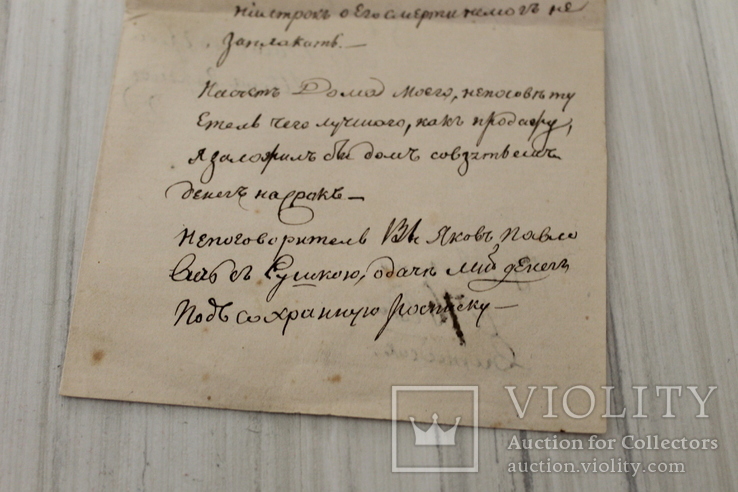 нiи строкъ о Его смерти немогъ не
заплакать. —
Насчетъ Дома моего, непосовѣту
Етель чего лучшаго, какъ продажу,
я заложилъ бы домъ совзятьемъ
денегъ насрокъ —
Непоговорителъ Вы Яковъ Павло
вичь съ Сушкою, одачѣ мнѣ денегъ
Подъ сохранную росписку —
VIOLITY
Auction for Collectors
auction.violity.com